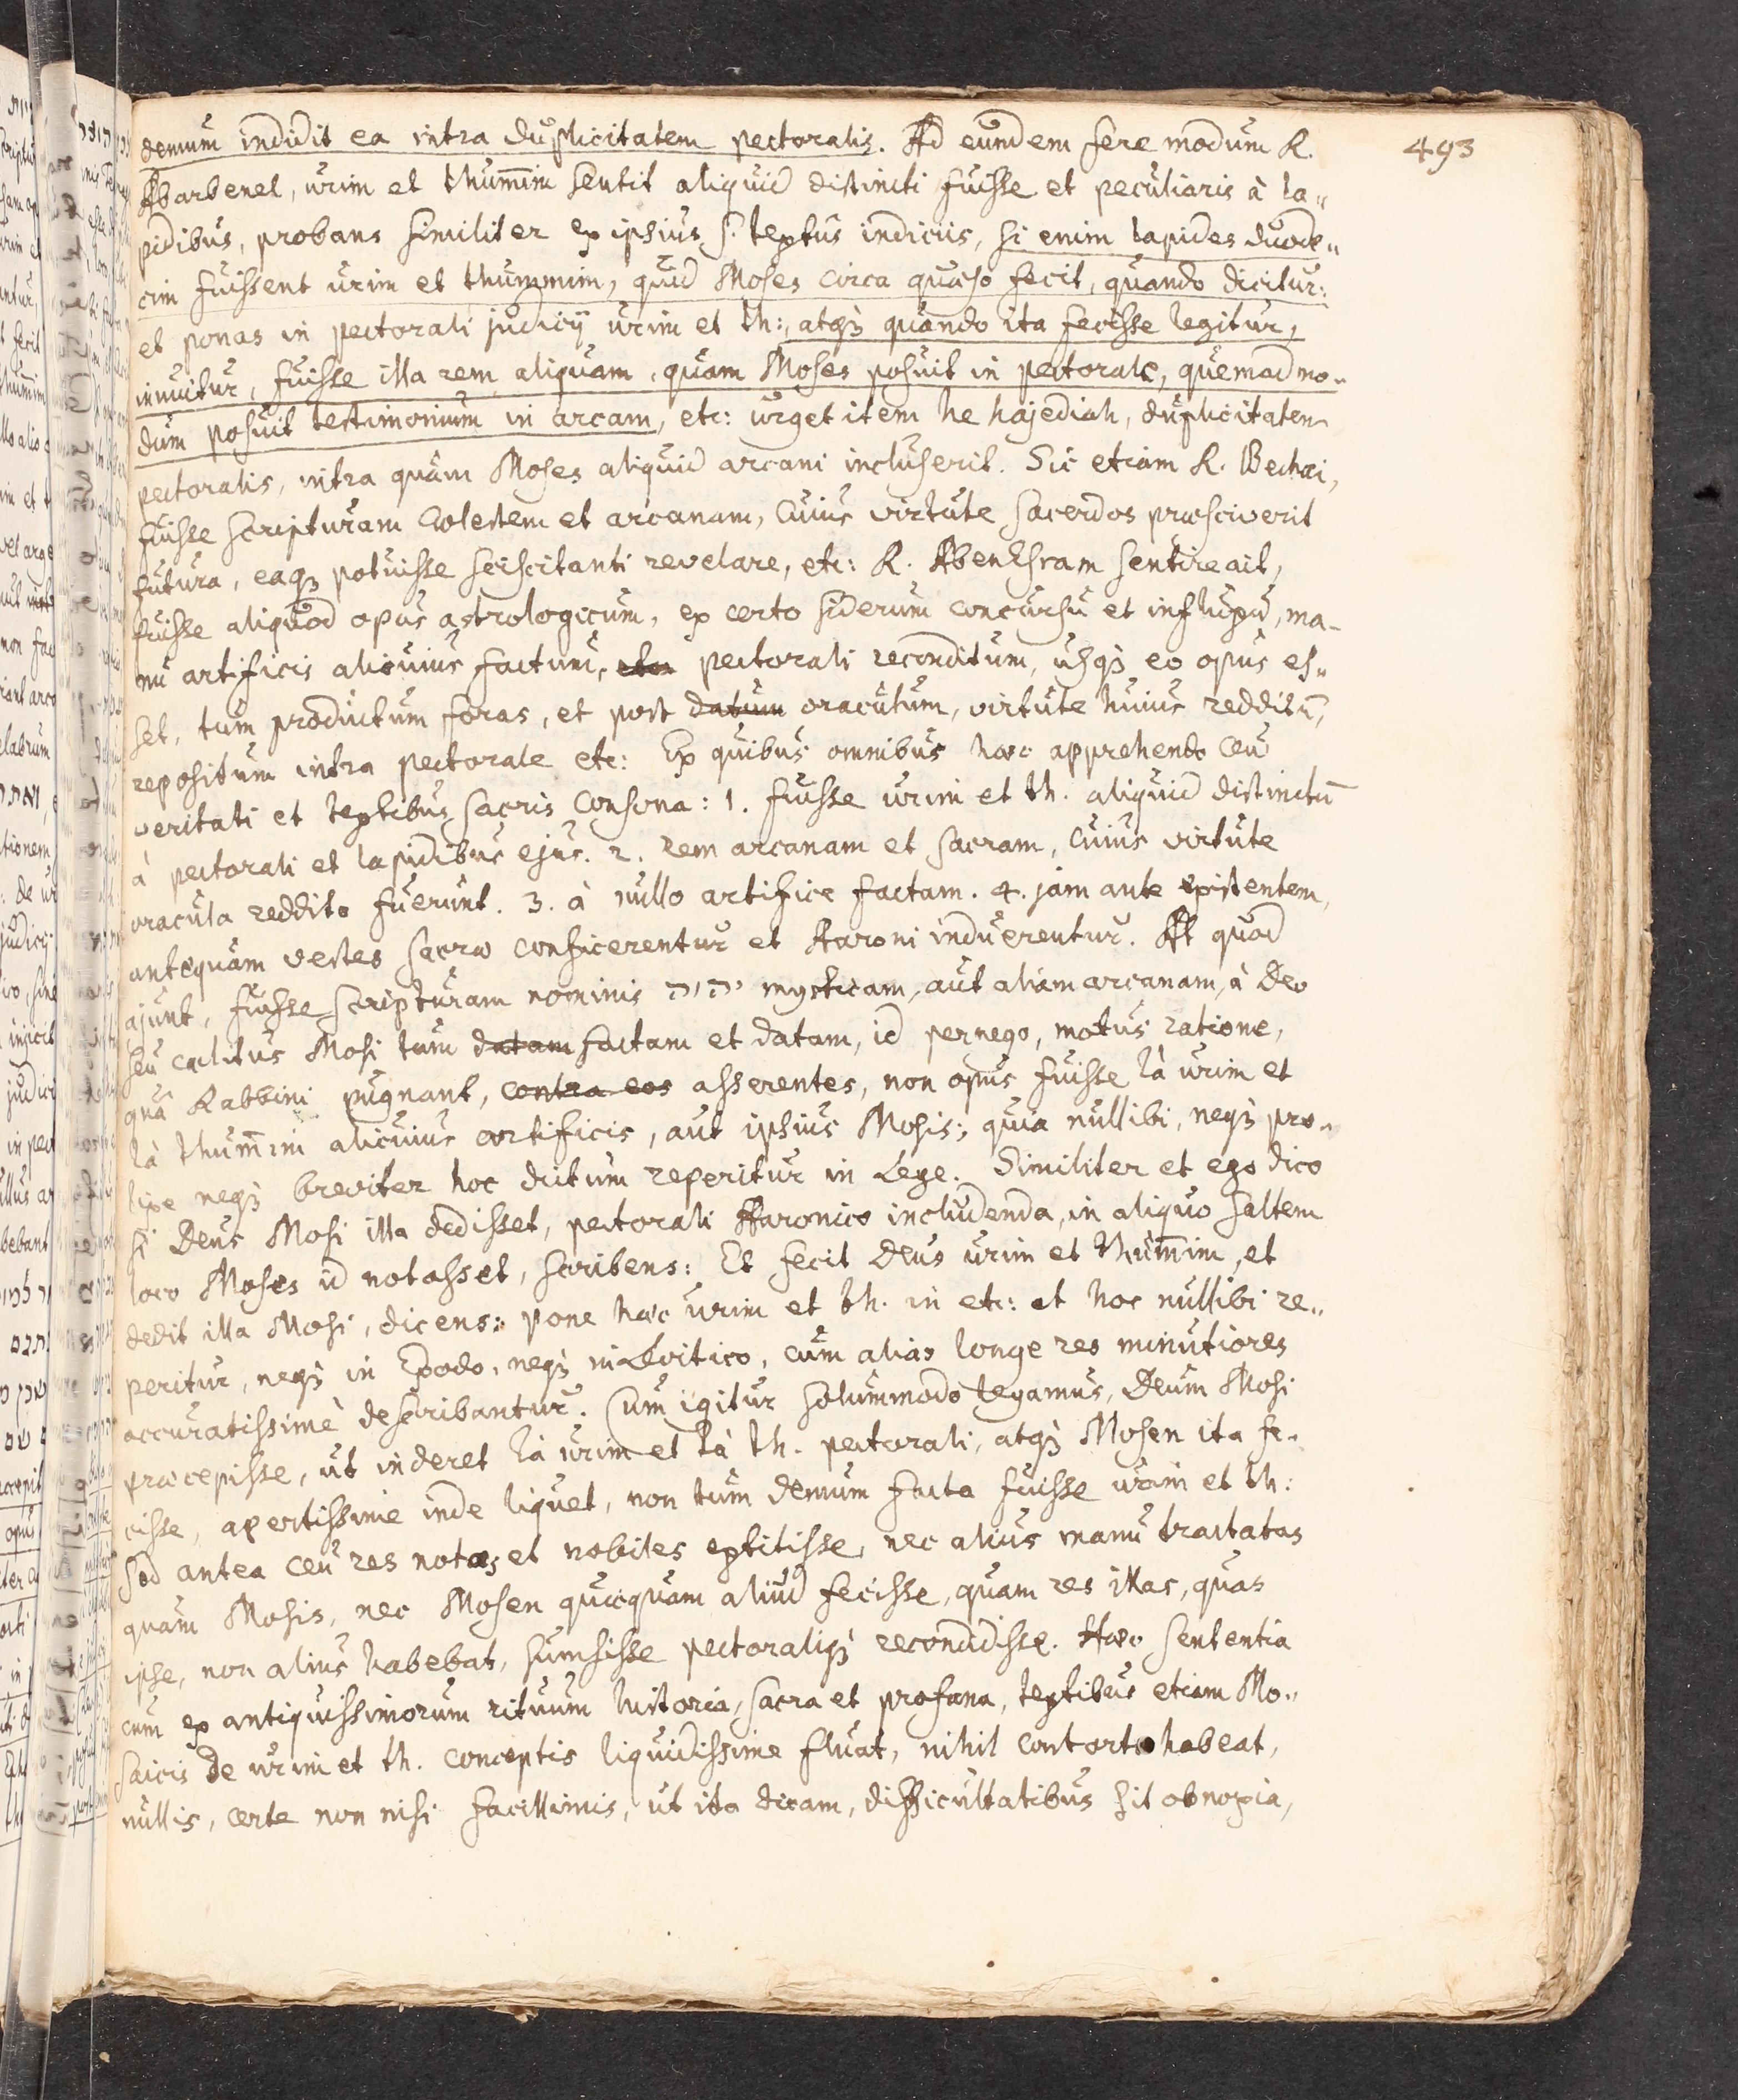 493
demum indidit ea intra duplicitatem pectoralis. Ad eumdem fere modum R.
Abarbenel, urim et thum̄im sentit aliquid distincti fuisse et peculiaris à la„
pidibus, probans similiter ex ipsius s. textus indiciis, si enim lapides duode„
cim fuissent urim et thummim, quid Moses circa quæso fecit, quando dicitur:
et ponas in pectorali judicij urim et th:, atqꝫ quando ita fecisse legitur,
innuitur, fuisse illa rem aliquam, quam Moses posuit in pectorale, quemadmo„
dum posuit testimonium in arcam, etc: urget item he hajediah, duplicitatem
pectoralis, intra quam Moses aliquid arcani incluserit. Sic etiam R. Bechai,
fuisse scripturam cœlestem et arcanam, cuius virtute sacerdos præsciverit
futura, eaqꝫ potuisse sciscitanti revelare, etc: R. AbenEsram sentire ait,
fuisse aliquod opus astrologicum, ex certo siderum concursu et influxu, ma-
nu artificis alicuius factum, etc pectorali reconditum, usqꝫ eo opus es„
set, tum productum foras, et post datum oraculum, virtute huius redditū,
repositum intra pectorale etc: Ex quibus omnibus hæc apprehendo ceu
veritati et textibus sacris consona: 1. fuisse urim et th. aliquid distinctū
à pectorali et lapidibus ejus. 2. rem arcanam et sacram, cuius virtute
oracula reddita fuerunt. 3. à nullo artifice factam. 4. jam ante existentem,
antequam vestes sacræ conficerentur et Aaroni induerentur. At quod
ajunt, fuisse scripturam nominis יהוה mysticam, aut aliam arcanam, à Deo
seu cælitus Mosi tum datam factam et datam, id pernego, motus ratione,
quâ Rabbini pugnant, contra eos asserentes, non opus fuisse τὰ urim et
τὰ thum̄im alicuius artificis, aut ipsius Mosis:, quia nullibi, neqꝫ pro„
lixe neqꝫ breviter hoc dictum reperitur in Lege. Similiter et ego dico
si Deus Mosi illa dedisset, pectorali Aaronico includenda, in aliquo saltem
loco Moses id notasset, scribens: Et fecit Deus urim et thum̄im, et
dedit illa Mosi, dicens: pone hæc urim et th. in etc: at hoc nullibi re„
peritur, neqꝫ in Exodo, neqꝫ in Levitico, cum alias longe res minutiores
accuratissimè describantur. Cum igitur solummodo legamus, Deum Mosi
præcepisse, ut inderet τὰ urim et τὰ th. pectorali, atqꝫ Mosen ita fe„
cisse, apertissime inde liquet, non tum demum facta fuisse urim et th:
sed antea ceu res notas et nobiles extitisse, nec alius manu tractatas
quam Mosis, nec Mosen quicquam aliud fecisse, quam res illas, quas
ipse, non alius habebat, sumsisse pectoraliqꝫ recondidisse. Hæc sententia
cum ex antiquissimorum rituum historia, sacra et profana, textibus etiam Mo„
saicis de urim et th. conceptis liquidissime fluat, nihil contorti habeat,
nullis, certe non nisi facillimis, ut ita dicam, difficultatibus sit obnoxia,